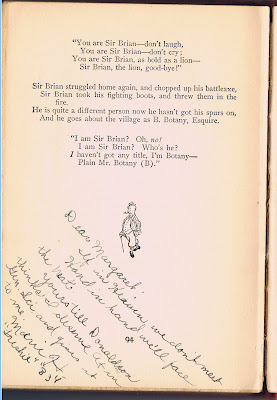 "You are Sir Brian—don't laugh,
You are Sir Brian—don't cry;
You are Sir Brian, as bold as a lion—
Sir Brian, the lion, good-bye!"
Sir Brian struggled home again, and chopped up his battleaxe,
Sir Brian took his fighting boots, and threw them in the
fire.
He is quite a different person now he hasn't got his spurs on,
And he goes about the village as B. Botany, Esquire.
"I am Sir Brian? Oh, no!
I am Sir Brian? Who's he?
I haven't got any title, I'm Botany—
Plain Mr. Botany (B)."
94
Dear Margaret:
If in Heaven we don't meet
Hand in hand we'll face
the heat
Yours till Donaldson
thinks I deserve A+ in
and gives it
to me.